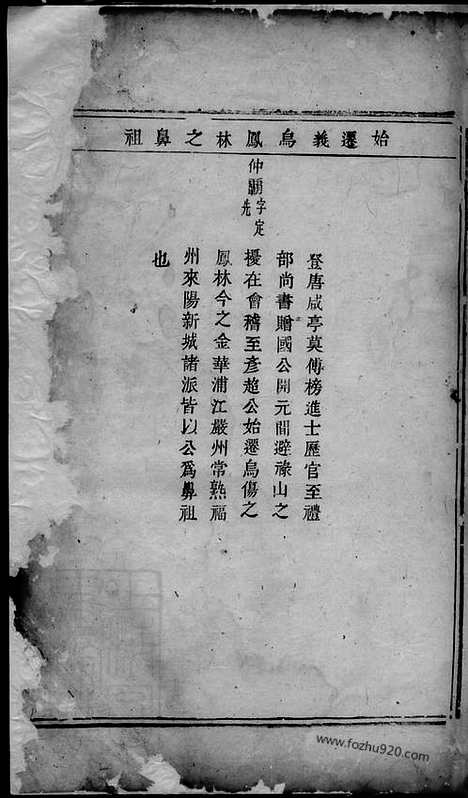 始遷義烏鳳林之鼻祖
仲
字定先
登唐咸亭莫傅榜進士歷官至禮
部尚書贈國公開元間避祿山之
擾在會稽至彥超公始遷烏傷之
鳳林今之金華浦江嚴州常熟福
州來陽新城諸派皆以公爲鼻祖
也
www.fozhu920.com